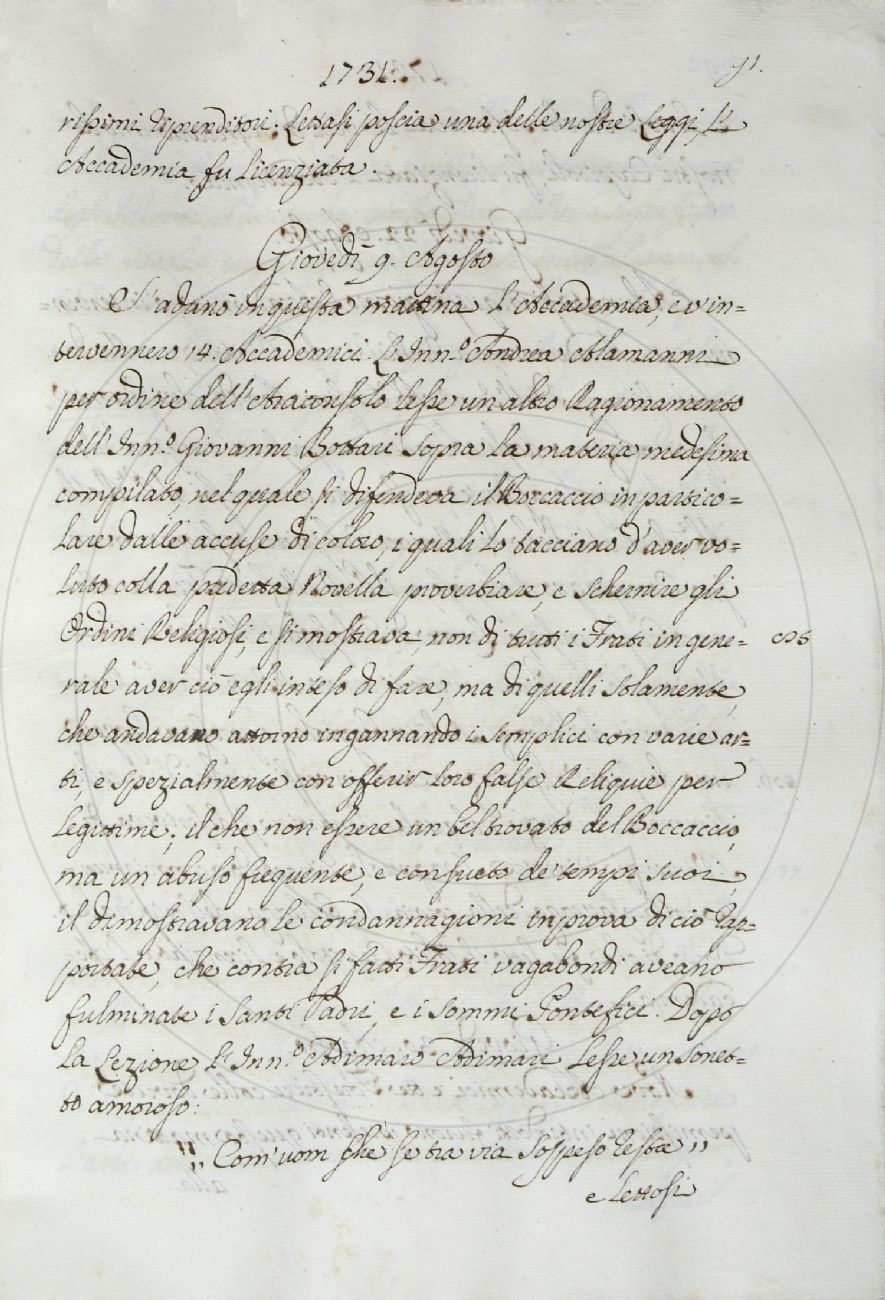 1731. 91.
rissimi Riprenditori. Lettasi poscia una delle nostre Leggi, L'
Accademia fu Licenziata.
Giovedì 9. Agosto
S'adunò in questa mattina L'Accademia, e v'in=
tervennero 14. Accademici. L'Inn.º Andrea Alamanni
per ordine dell'Arciconsolo lesse un altro Ragionamento
dell'Inn.º Giovanni Bottari sopra La materia medesima
compilato, nel quale si difendeva il Boccaccio in partico=
Lare dalle accuse di coloro, i quali Lo tacciano d'aver vo=
luto colla predetta Novella proverbiare, e schernire gli
Ordini Religiosi, e si mostrava, non di tutti i Frati in gene=
rale aver ciò egli inteso di fare, ma di quelli solamente,
che andavano attorno ingannando i semplici con varie ar=
ti, e spezialmente con offerir Loro false Reliquie per
Legittime; il che non essere un bel trovato del Boccaccio,
ma un abuso frequente, e consueto de' tempi suoi,
il dimostravano Le condannagioni in prova di ciò rap=
portate, che contra sì fatti Frati vagabondi aveano
fulminate i Santi Padri, e i Sommi Pontefici. Dopo
La Lezione L'Inn.º Adimaro Adimari Lesse un Sonet=
to amoroso:
"Com'uom che fra via sospeso reste"
e Lettosi